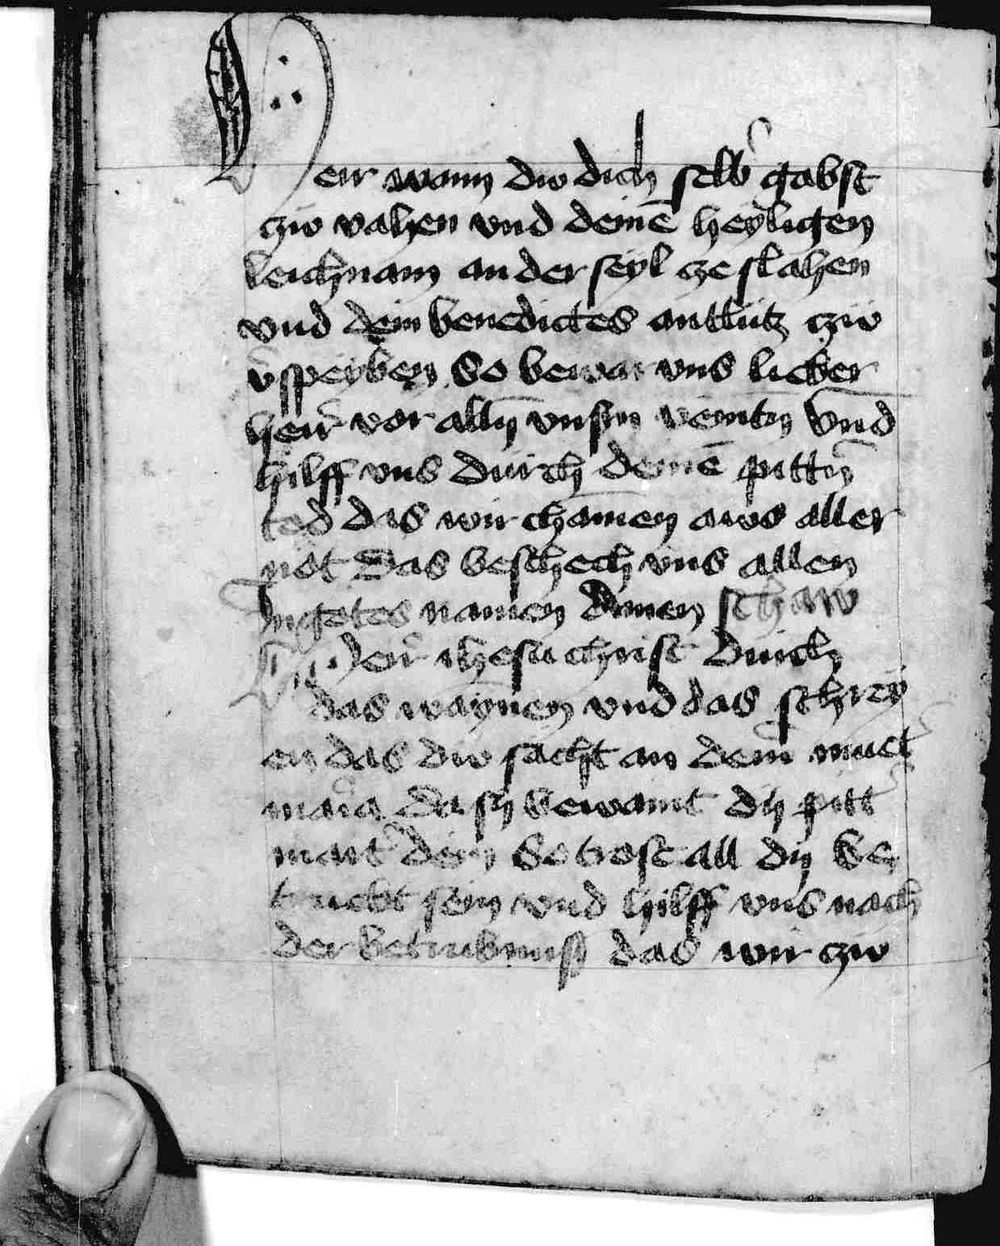 Herr wann dw dich selb gabst
zw vahen vnd deinē heyligen
leichnam an der seyl ze slahen
vnd dein benedictes antlütz zw
v̄speyben So bewar vns lieber
herr vor alln vnsern veintn vnd
hilff vns durch deinē pittn̄
tod das wir chamen aws aller
not Das beschech vns allen
In gotes namen Amen schaw
Herr ihesu christ Durch
das waynen vnd das schrey
en das dw sacht an deinr muet
maria da sy bewaint dy pitt
mart dein So trost all dy be
truebt sein vnd hilff vns nach
der betrubnuss das wir zw